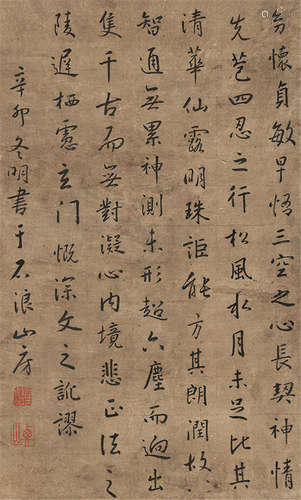 幼懷貞敏早悟三空之心長契神情
先苞四忍之行松風水月未足比其
清華仙露明珠詎能方其朗潤故
智通無累神測未形超六塵而迥出
隻千古而無對凝心內境悲正法之
陵遲栖慮玄門慨深文之訛謬
辛卯冬明書于石浪山房